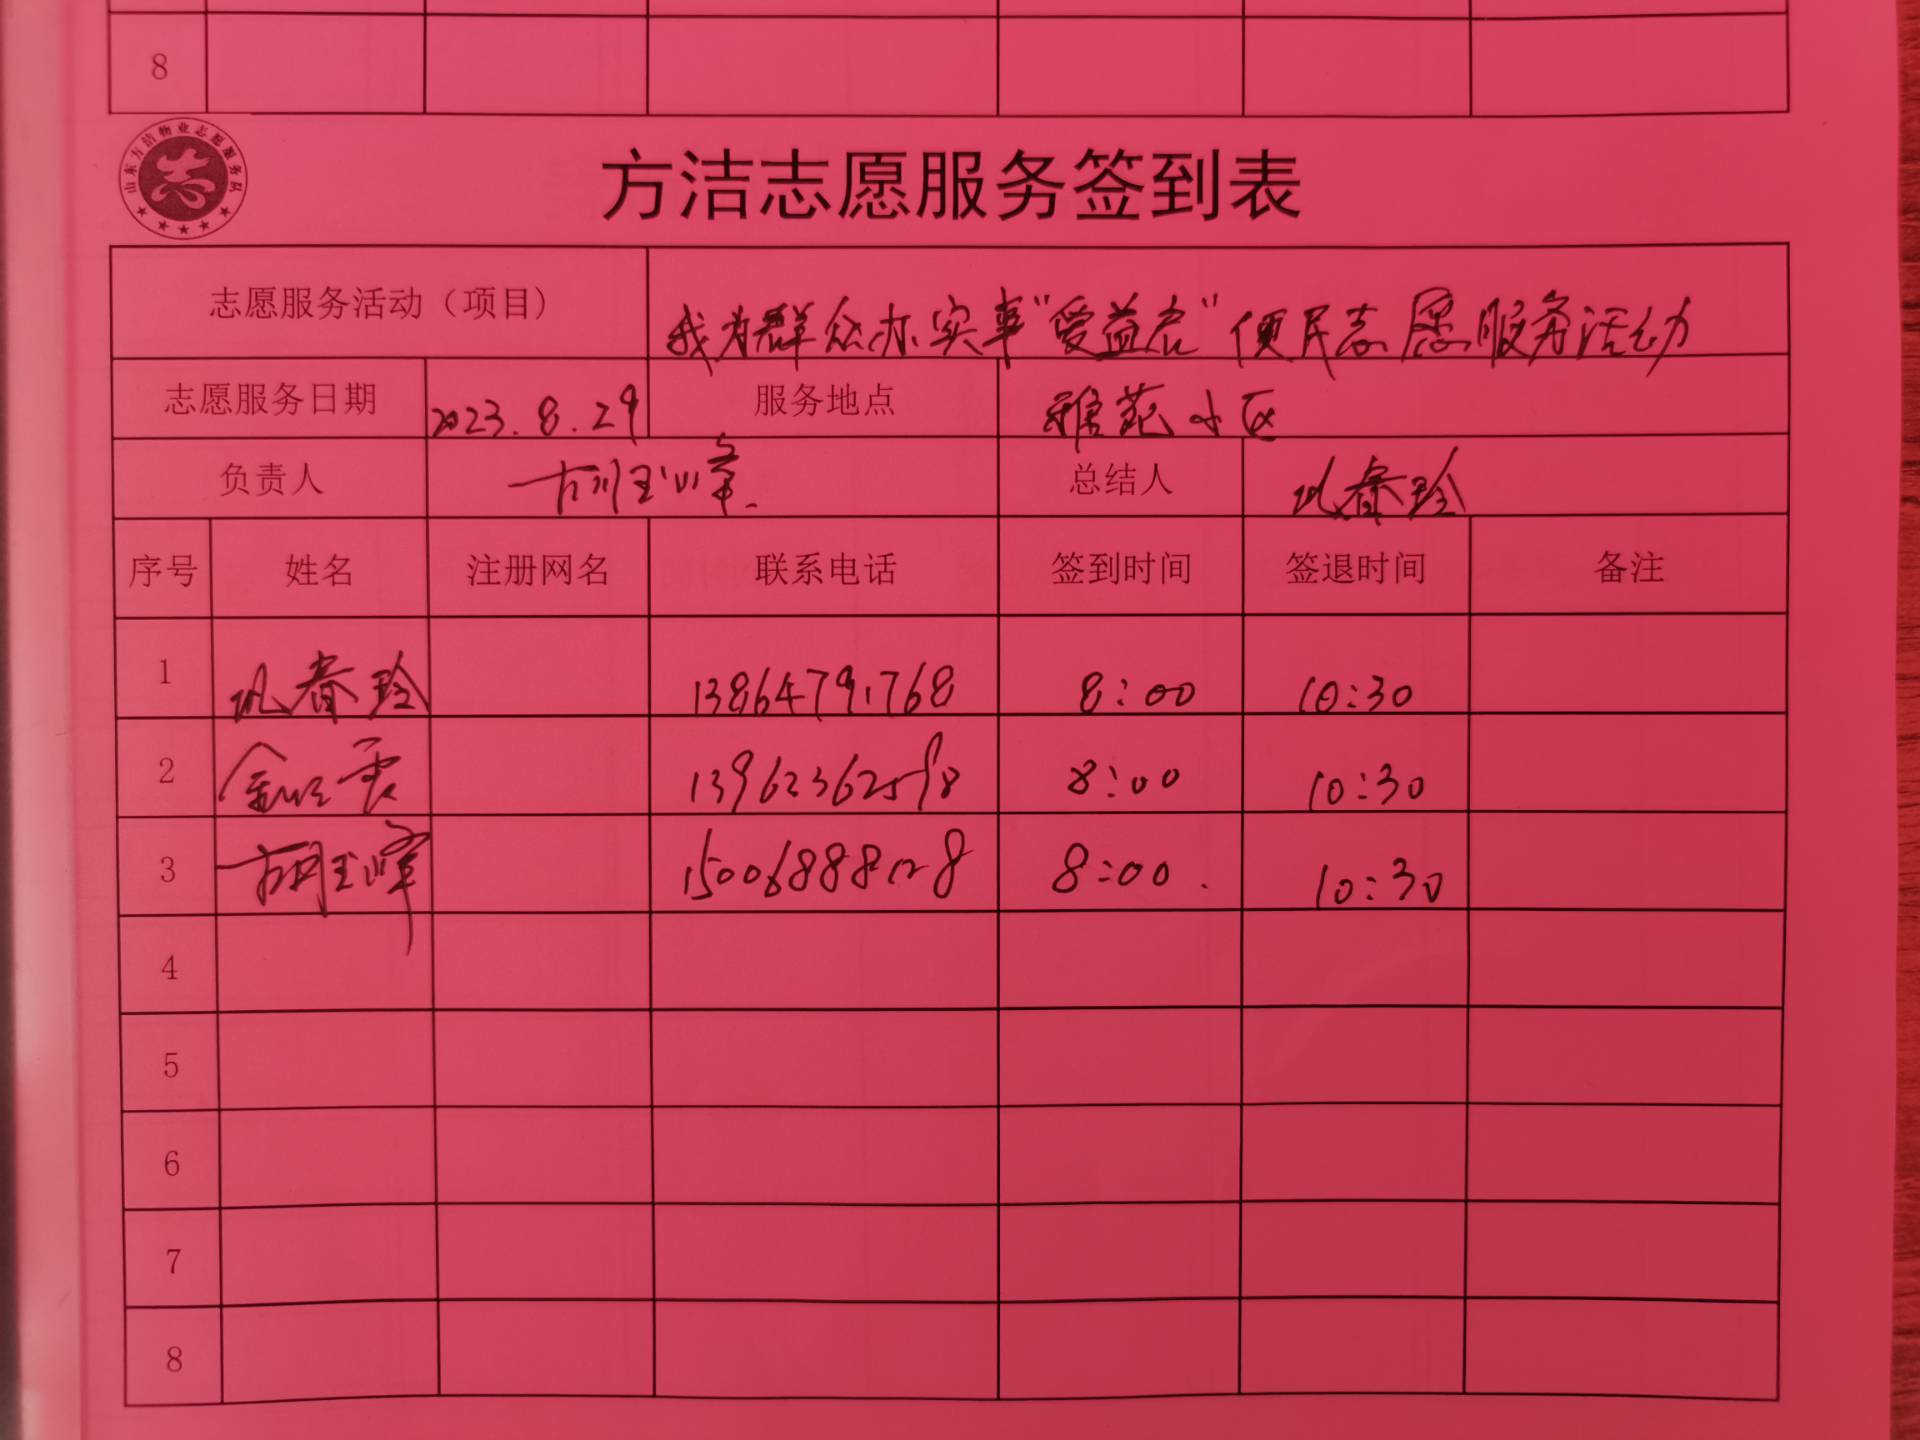 8
山东方洁物业志愿服务队
方洁志愿服务签到表
志愿服务活动（项目） 我为群众办实事“爱益启”便民志愿服务活动
志愿服务日期 2023.8.29 服务地点 雅苑小区
负责人 胡玉峰 总结人 巩春玲
序号 姓名 注册网名 联系电话 签到时间 签退时间 备注
1 巩春玲 13864791768 8:00 10:30
2 13962362598 8:00 10:30
3 胡玉峰 15006888128 8:00 10:30
4
5
6
7
8